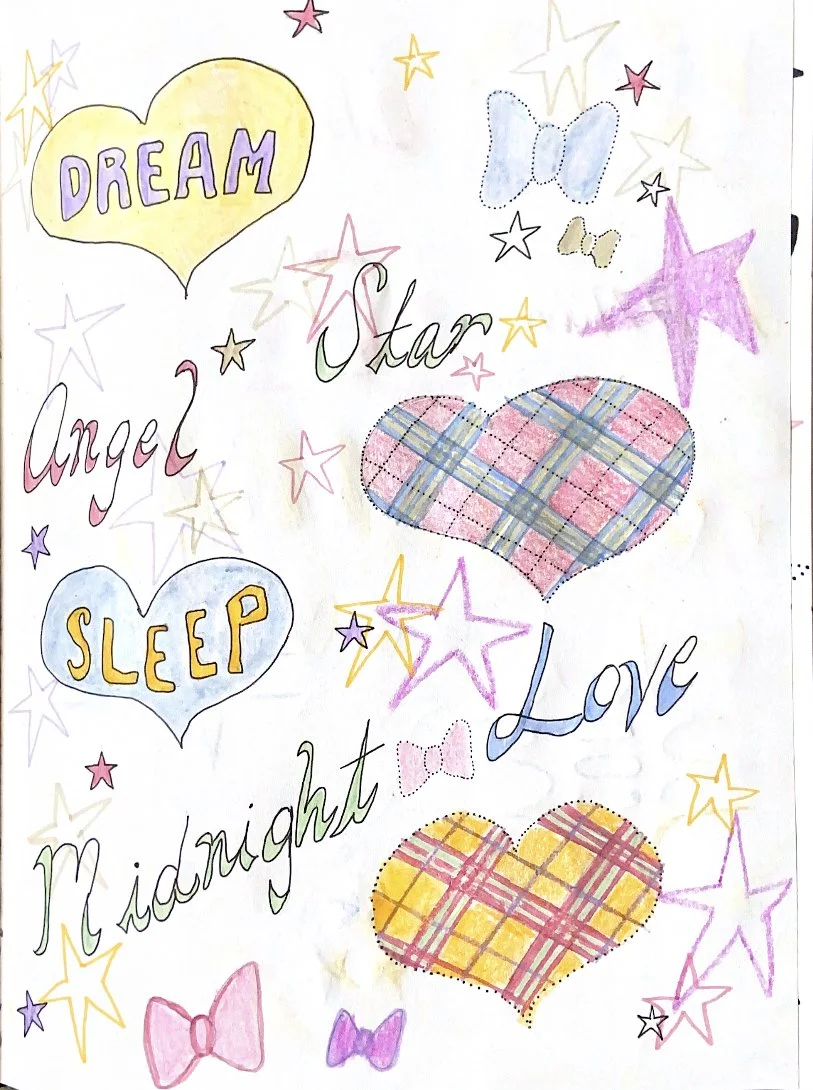 DREAM
Star
Angel
SLEEP
Love
Midnight